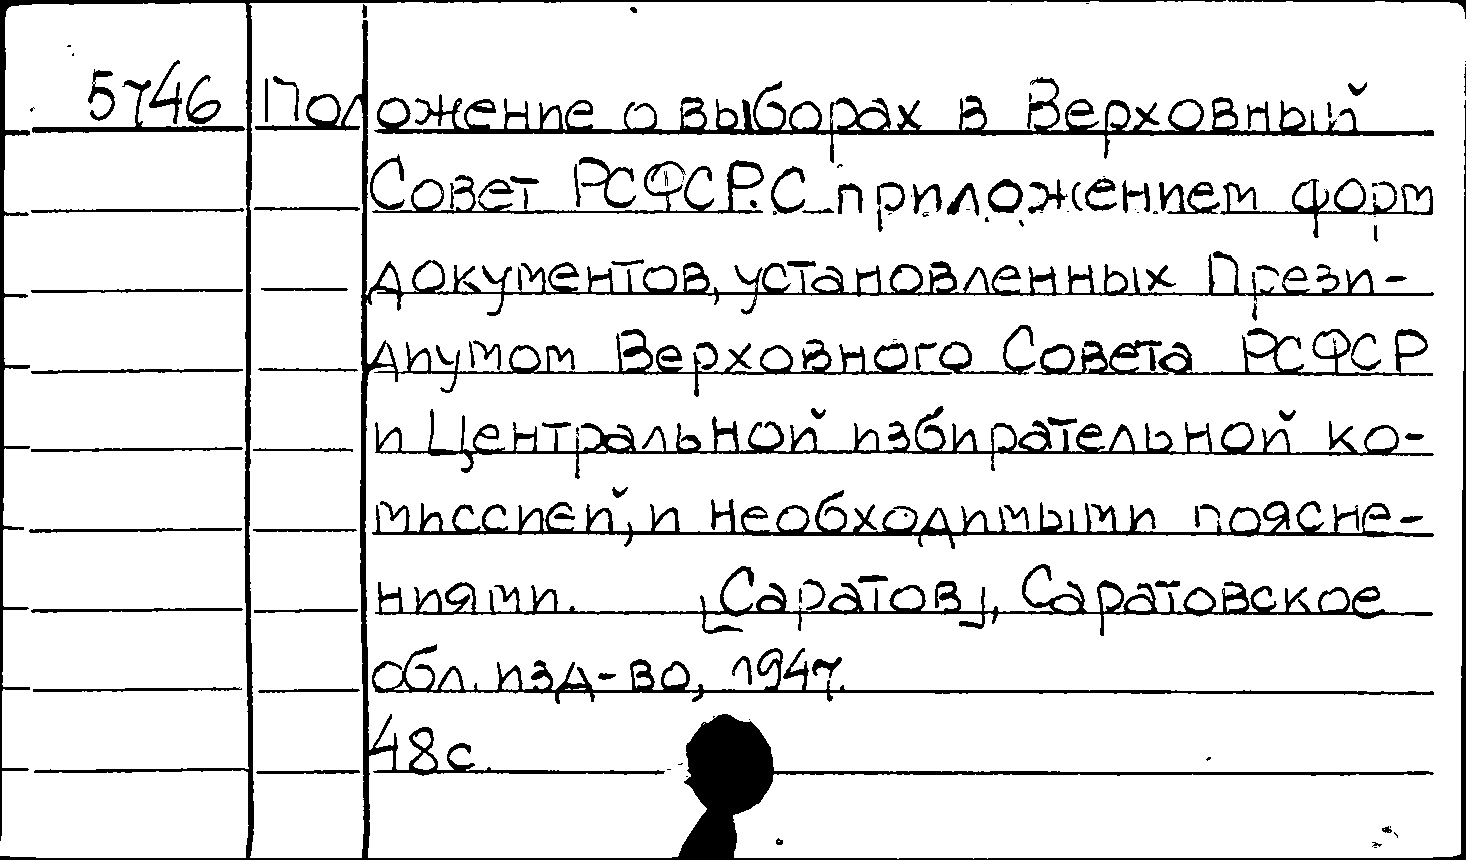 5746 Положение о выборах в Верховный
Совет РСФСР. С приложением форм
документов, установленных Прези-
диумом Верховного Совета РСФСР
и Центральной избирательной ко-
миссией, и необходимыми поясне-
ниями. [Саратов], Саратовское
обл. изд-во, 1947.
48 с.